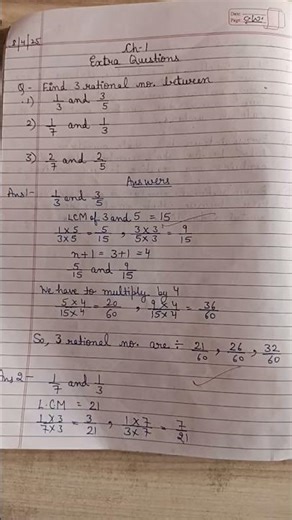 Date:
Page:
8/4/25
Ch-1
Extra Questions
Q - Find 3 rational no. between
1) 1/3 and 3/5
2) 1/7 and 1/3
3) 2/7 and 2/5
Answers
Ans1- 1/3 and 3/5
LCM of 3 and 5 = 15
1×5/3×5 = 5/15 , 3×3/5×3 = 9/15
n+1 = 3+1 = 4
5/15 and 9/15
We have to multiply by 4
5×4/15×4 = 20/60 , 9×4/15×4 = 36/60
So, 3 rational no. are ÷ 21/60 , 26/60 , 32/60
Ans2- 1/7 and 1/3
L.CM = 21
1×3/7×3 = 3/21 , 1×7/3×7 = 7/21